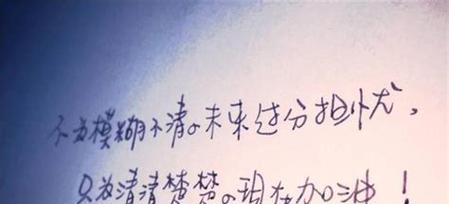 不为模糊不清的未来过分担忧,
只为清清楚楚的现在加油!